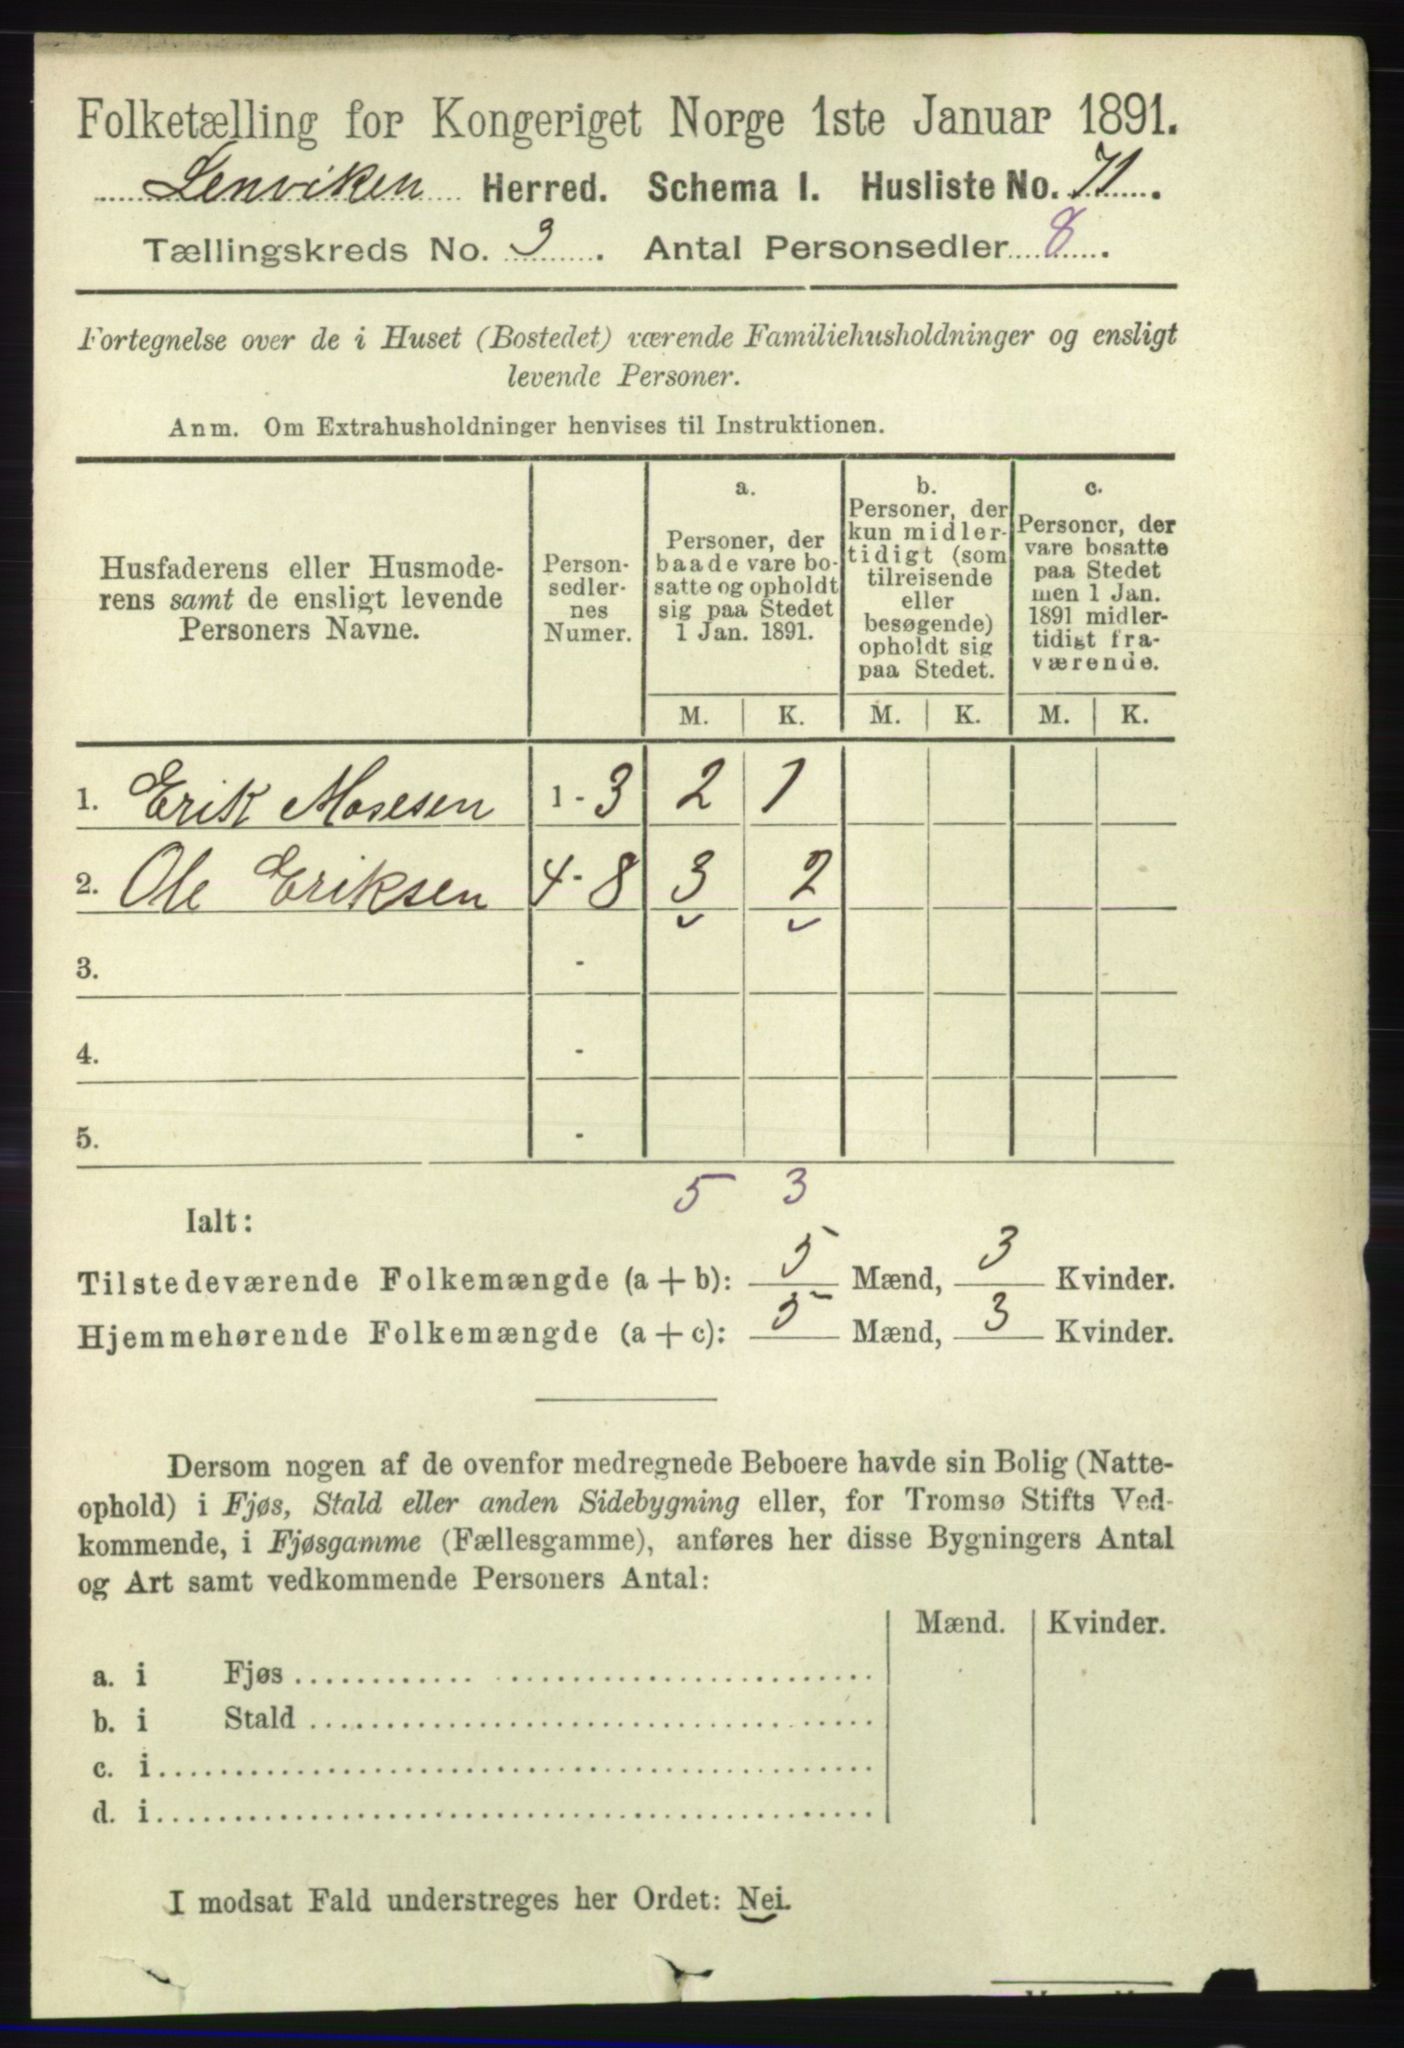 Folketælling for Kongeriget Norge 1ste Januar 1891.
Lenviken Herred. Schema I. Husliste No. 71.
Tællingskreds No. 3. Antal Personsedler 8.
Fortegnelse over de i Huset (Bostedet) værende Familiehusholdninger og ensligt
levende Personer.
Anm. Om Extrahusholdninger henvises til Instruktionen.
Husfaderens eller Husmode-
rens samt de ensligt levende
Personers Navne.
Person-
sedler-
nes
Numer.
a.
Personer, der
baade vare bo-
satte og opholdt
sig paa Stedet
1 Jan. 1891.
b.
Personer, der
kun midler-
tidigt (som
tilreisende
eller
besøgende)
opholdt sig
paa Stedet.
c.
Personer, der
vare bosatte
paa Stedet
men 1 Jan.
1891 midler-
tidigt fra-
værende.
M. K. M. K. M. K.
1. Erik Mosesen 1 - 3 2 1
2. Ole Eriksen 4 - 8 3 2
3. -
4. -
5. -
5 3
Ialt:
Tilstedeværende Folkemængde (a + b): 5 Mænd, 3 Kvinder.
Hjemmehørende Folkemængde (a + c): 5 Mænd, 3 Kvinder.
Dersom nogen af de ovenfor medregnede Beboere havde sin Bolig (Natte-
ophold) i Fjøs, Stald eller anden Sidebygning eller, for Tromsø Stifts Ved-
kommende, i Fjøsgamme (Fællesgamme), anføres her disse Bygningers Antal
og Art samt vedkommende Personers Antal:
Mænd. Kvinder.
a. i Fjøs
b. i Stald
c. i
d. i
I modsat Fald understreges her Ordet: Nei.